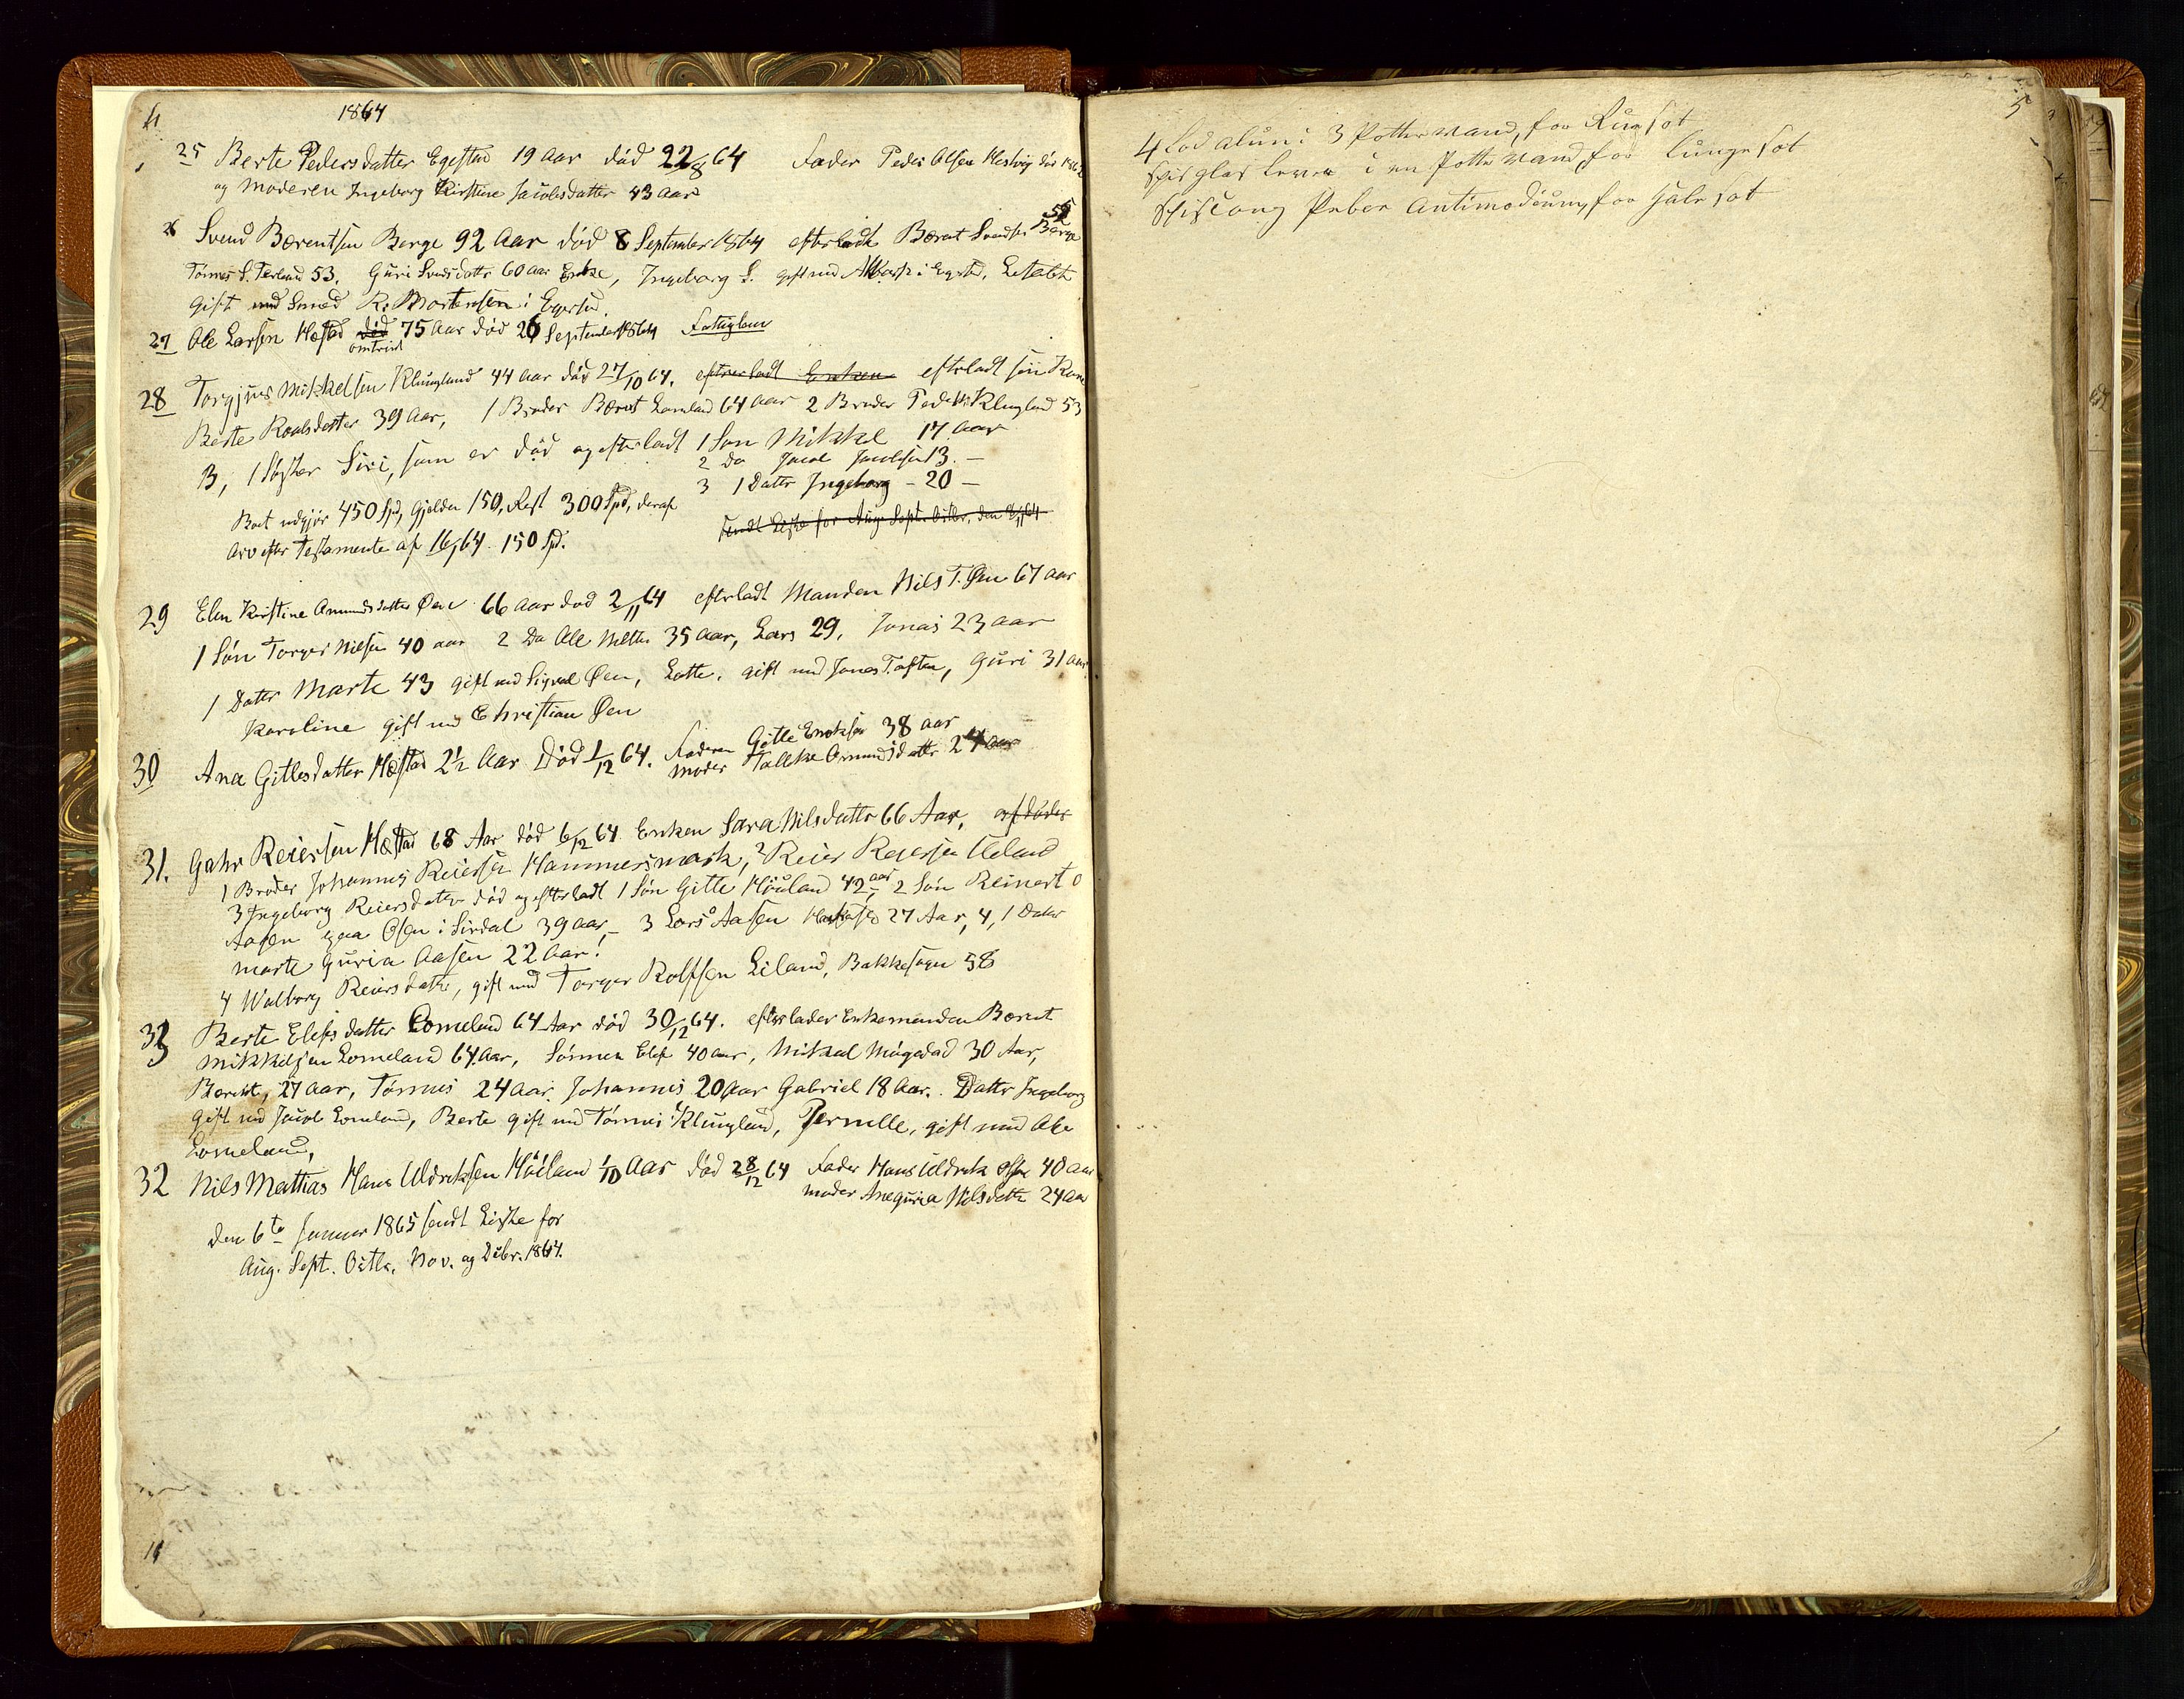 1864
25 Berte Pedersdatter Egestad 19 Aar død 22/8 64 Fader Peder Olsen Hestvig
og Moderen Ingeborg Kirstine Jacobsdatter 43 Aar
26 Svend Bærentsen Berge 92 Aar død 8 September 1864 efterladt Bærent Svendsen Berge 55
Tønnes S. Terland 53, Guri Svendsdatter 60 Aar Enke, Ingeborg S. gift med i Egersd,
gift med Smed R. Mortensen i Egersd.
27 Ole Larsen Hæstad død omtrent 75 Aar død 26 September 1864 Fattiglem
28 Torgjus Mikkelsen Klungland 44 Aar død 27/10 64. efterladt Enken efterladt sin Kone
Berte Roalsdatter 39 Aar, 1 Broder Bærent Lomeland 64 Aar 2 Broder Peder M. Klungland 53
3, 1 Søster Siri, som er død og efterladt 1 Søn Mikkel 17 Aar
2 Do Jacob Jacobsen 13 —
3 1 Datter Ingeborg - 20 —
Boet udgjør 450 Spd, Gjelden 150, Rest 300 Spd, deraf
Arv efter Testamente af 16/5 64 150 Spd.
Sendt Liste for Aug. Sept. Octbr. den 8/11 64
29 Elen Kirstine Amundsdatter Øen 66 Aar død 2/11 64 efterladt Manden Nils T. Øen 67 Aar
1 Søn Torger Nilsen 40 aar 2 Do Ole Nilsen 35 Aar, Lars 29, Jonas 23 aar
1 Datter Marte 43 gift med Sigval Øen, Lotte, gift med Jonas Toften, Guri 31 aar
Karoline gift med Christian Øen
30 Ana Gitlesdatter Hæstad 2½ Aar Død 1/12 64. Faderen Gitle Enoksen 38 aar
Moder Tolleke Omundsdatter 24 aar
31. Gahr Reiersen Hæstad 68 Aar død 6/12 64 Enken Sara Nilsdatter 66 Aar, afdøde
1 Broder Johannes Reiersen Hammersmark, 2 Reier Reiersen Ueland
3 Ingeborg Reiersdatter død og efterladt 1 Søn Gitle Høuland 42 aar, 2 Søn Reinert O
Aasen Osen i Sirdal 39 aar, - 3 Lars Aasen 27 Aar, 4, 1 Datter
Marte Guria Aasen 22 Aar!
4 Walborg Reiersdatter, gift med Torger Rolfsen Eiland, Bakkesogn 58
33 Berte Elefsdatter Lomeland 64 Aar død 30/12 64. efterlader Enkemanden Bærent
Mikkelsen Lomeland 64 Aar, Sønnen Elef 40 aar, Mikal Møgedad 30 Aar,
Bærent, 27 Aar, Tønnes 24 Aar. Johannes 20 Aar Gabriel 18 Aar. Datter Ingeborg
gift med Jacob Lomeland, Berte gift med Tønnes Klungland, Pernille, gift med Ole
Lomeland,
32 Nils Mathias Hans Uldriksen Høiland 1/10 Aar død 28/12 64 Fader Hans Uldrik Olsen 40 aar
moder Aneguria Nilsdatter 24 Aar
Den 6te Januar 1865 sendt Liste for
Aug. Sept. Octbr. Nov. og Decbr. 1864.
5
4 Lod alun i 3 Potter vand, for Rugsot
Spisglas lever i en Potte Vand, for lungesot
Peber Antimodium, for Halssot